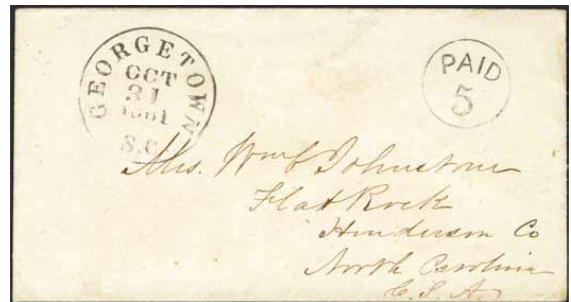 GEORGETOWN
OCT
31
1861
S.C.
PAID
5
Mrs. Wm Johnstone
Flat Rock
Henderson Co
North Carolina
C.S.A.